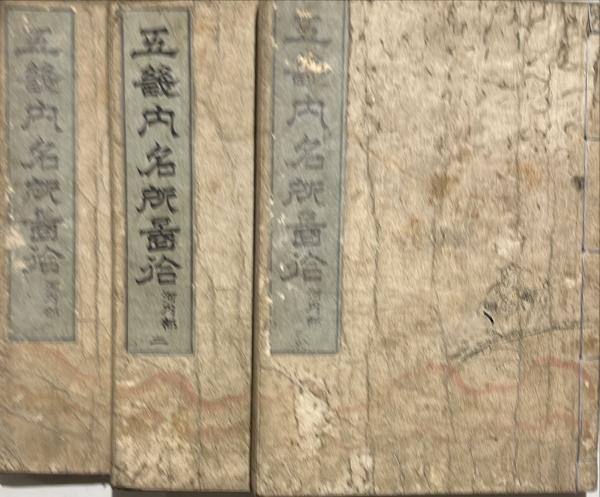 五畿内名所圖會
河内部
五畿内名所圖會
河内部 二
五畿内名所圖會
河内部